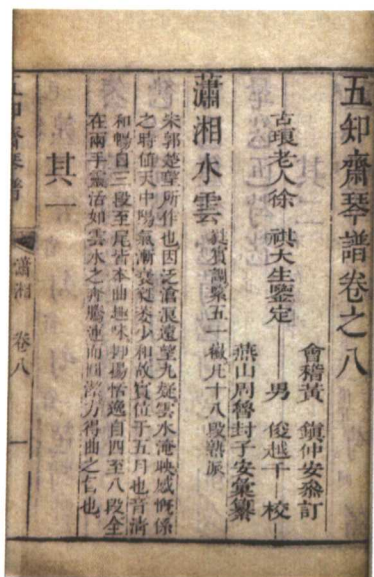 五知齋琴譜卷之八
會稽黃 鎮仲安叅訂
古瑯老人徐 祺大生鑒定 男 俊越千 校
燕山周魯封子安彙纂
瀟湘水雲 蕤賓調緊五一徽凡十八段熟派
宋郭楚望所作也因泛滄浪遠望九疑雲水淹映感慨係
之時值天中陽氣漸衰蕤委少和故賓位于五月也音清
和暢自三段至尾皆本曲趣味抑揚恬逸自四至八段全
在兩手靈活如雲水之奔騰連而圓潔方得曲之旨也
其一
五知齋琴譜 瀟湘 卷八 一